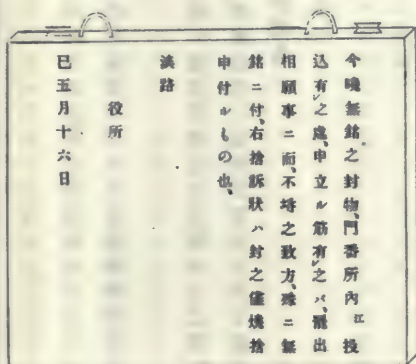 今曉無銘之封物、門番所內江投
込有レ之處、申立ル筋有レ之バ、罷出
相願事ニ而、不埓之致方、殊ニ無
銘ニ付、右捨訴狀ハ封之儘燒捨
申付ルもの也、
淡路
役所
巳五月十六日